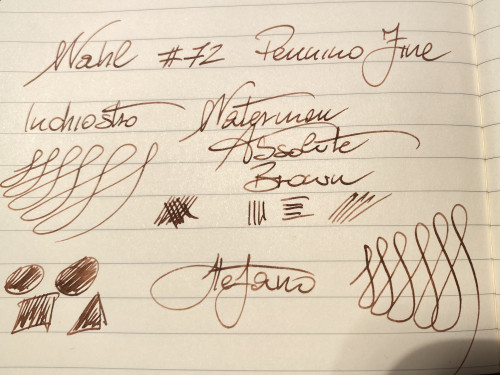 Wahl #72 Pennino Fine
Inchiostro Waterman
Absolute
Brown
Stefano